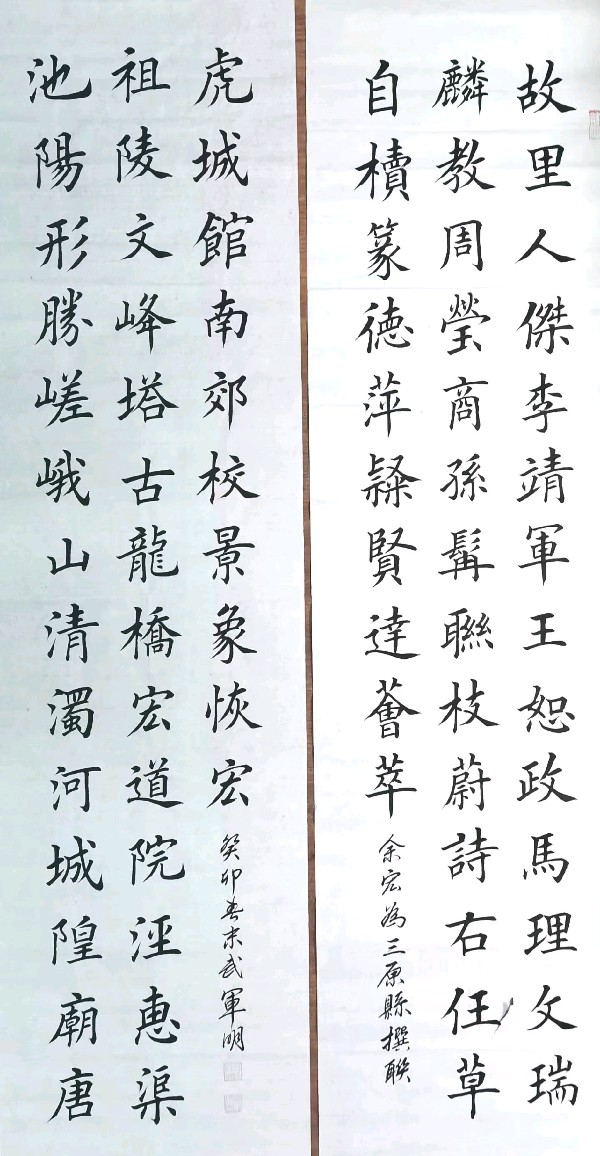 故里人傑李靖軍王恕政馬理文瑞
麟教周瑩商孫髯聯枝蔚詩右任草
自櫝篆德萍賢達薈萃
余宏為三原縣撰聯
池陽形勝嵯峨山清濁河城隍廟唐
祖陵文峰塔古龍橋宏道院涇惠渠
虎城館南郊校景象恢宏
癸卯春末武軍明